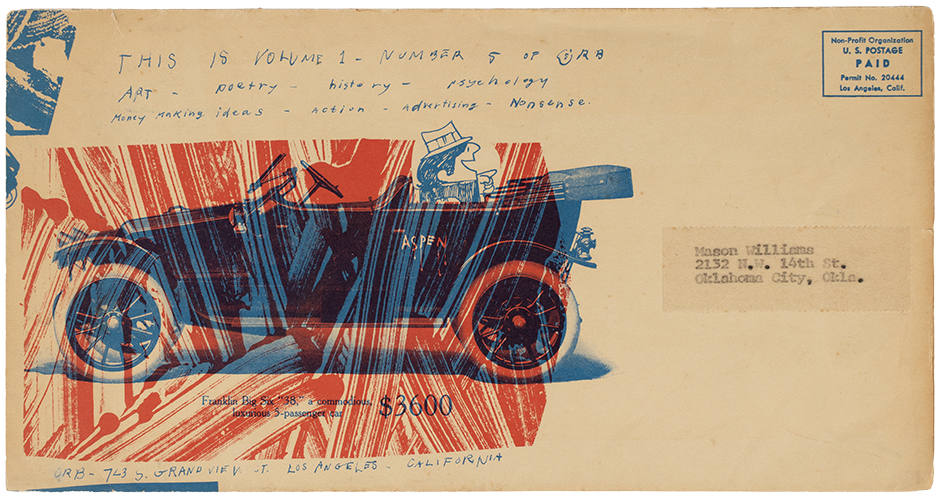 THIS IS VOLUME 1 - NUMBER 5 OF ORB
ART - poetry - history - psychology
Money making ideas - action - advertising - Nonsense.
Non-Profit Organization
U. S. POSTAGE
PAID
Permit No. 20444
Los Angeles, Calif.
ASPEN
Mason Williams
2132 N.W. 14th St.
Oklahoma City, Okla.
Franklin Big Six "38," a commodious,
luxurious 5-passenger car
$3600
ORB - 743 S. GRANDVIEW ST. LOS ANGELES - CALIFORNIA